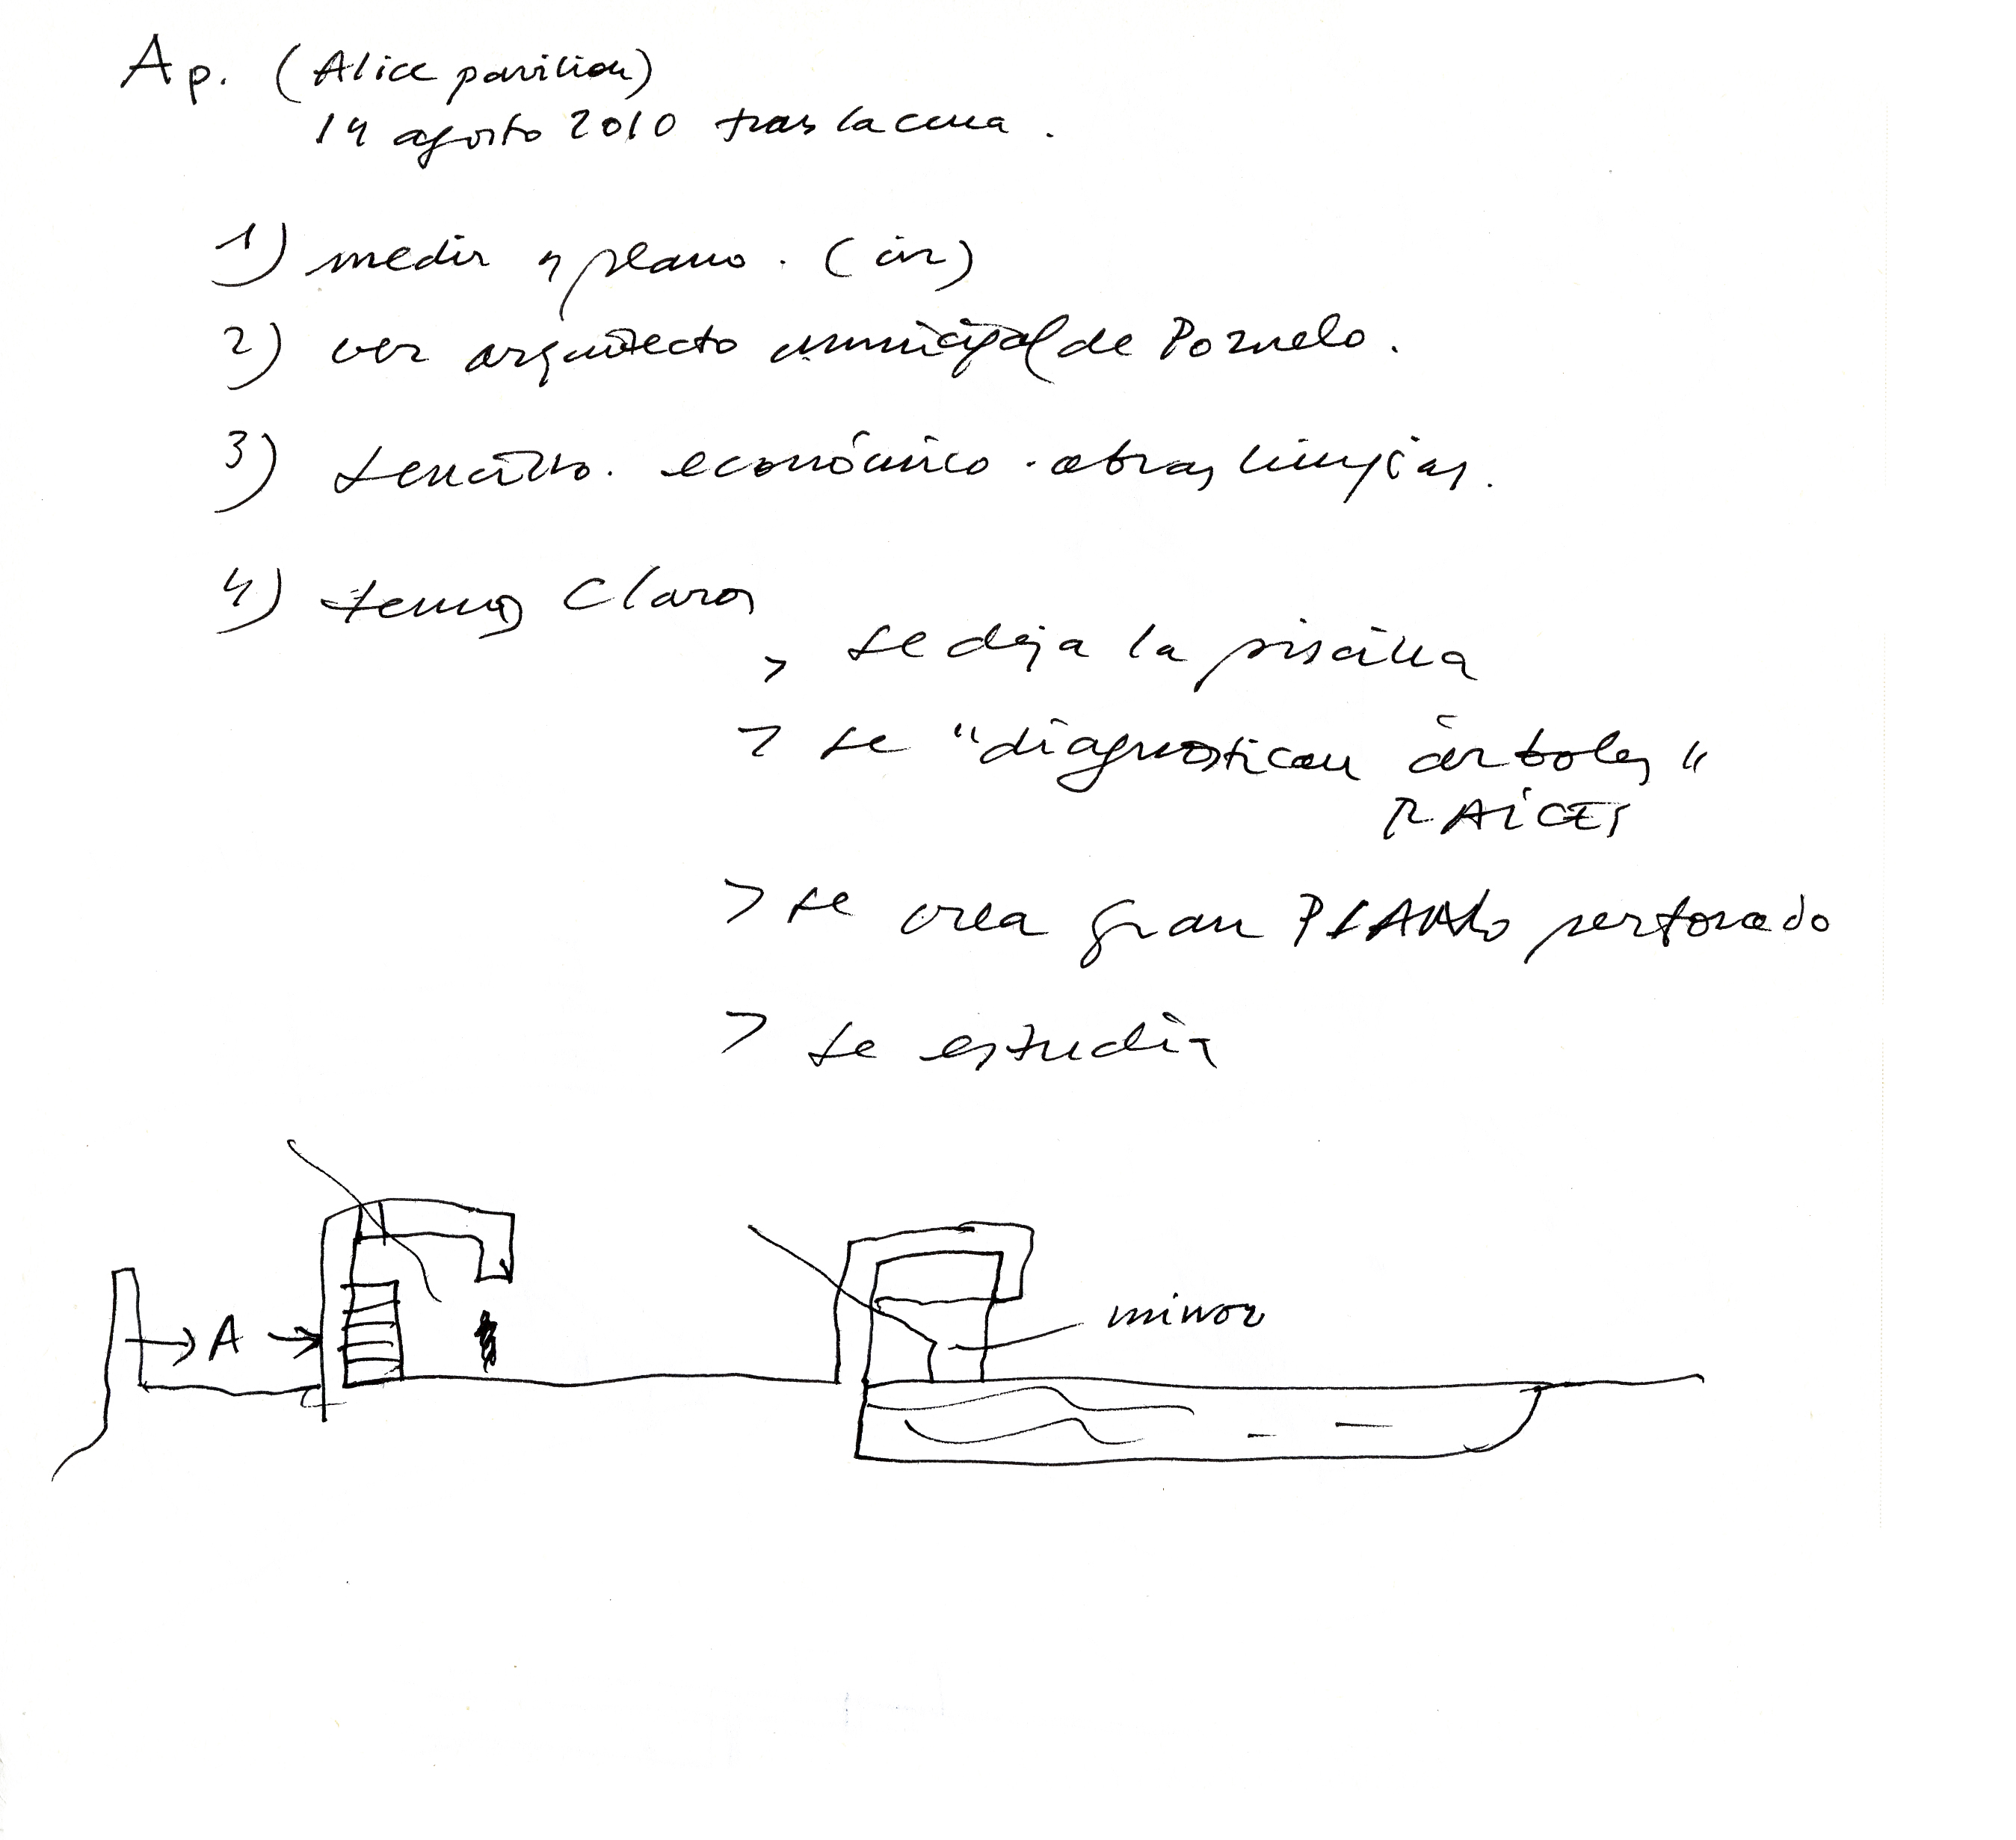 Ap. (Alice pavilion)
14 agosto 2010 tras la cena.
1) medir y plano. (ir)
2) ver arquitecto municipal de Pozuelo.
3) sencillo. económico. obras limpias.
4) temas claros
> se deja la piscina
> se "diagnostican árboles"
RAÍCES
> se crea gran PLANO perforado
> se estudia
A
mirror